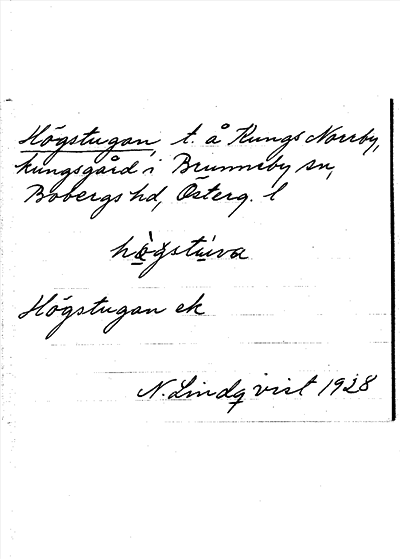 Högstugan, t. å Kungs Norrby,
kungsgård i Brunneby sn,
Bobergs hd, Österg. l
hö̀gstuva
Högstugan ek
N. Lindqvist 1928